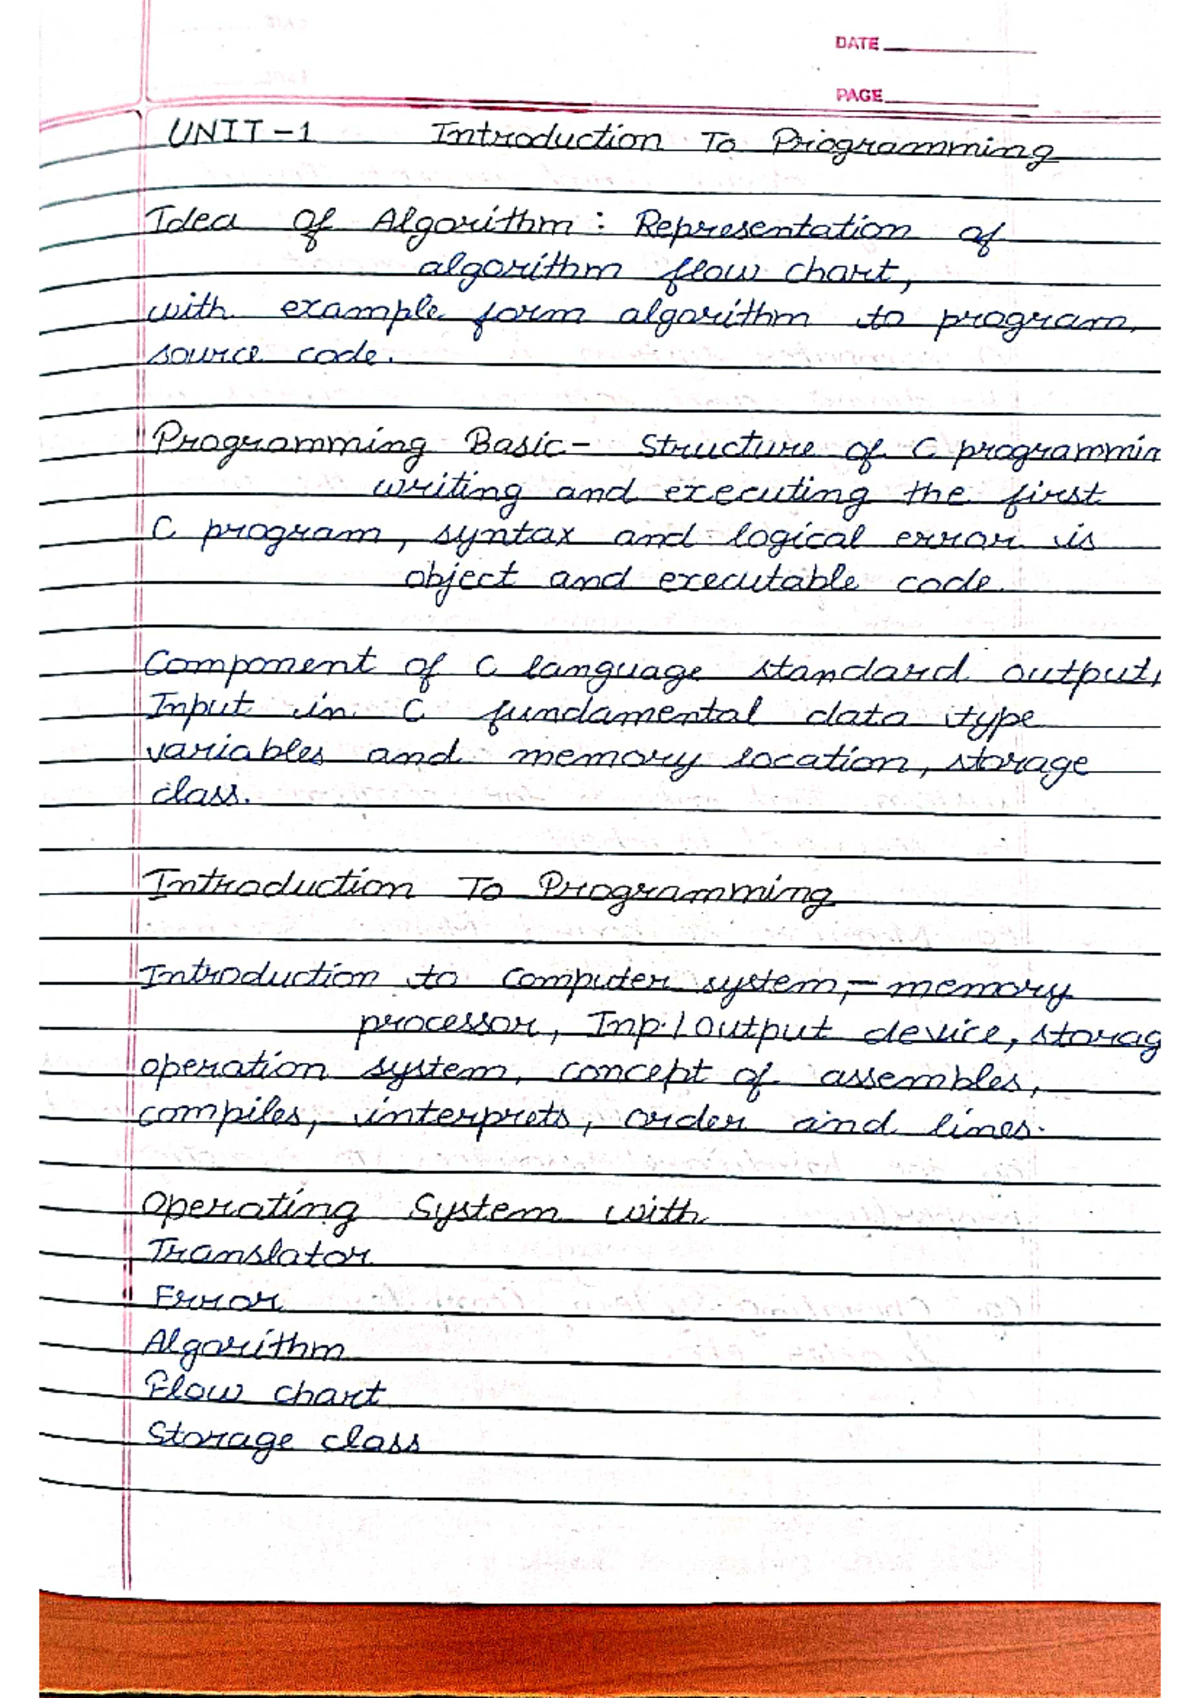 DATE
PAGE
UNIT-1 Introduction To Programming
Idea of Algorithm: Representation of
algorithm flow chart,
with example form algorithm to program,
source code.
Programming Basic- Structure of C programmin
writing and executing the first
C program, syntax and logical error is
object and executable code.
Component of C language standard output,
Input in C fundamental data type
variables and memory location, storage
class.
Introduction To Programming
Introduction to computer system,- memory
processor, Inp./output device, storag
operation system, concept of assembles,
compiles, interprets, order and lines.
Operating System with
Translator
Error
Algorithm
Flow chart
Storage class